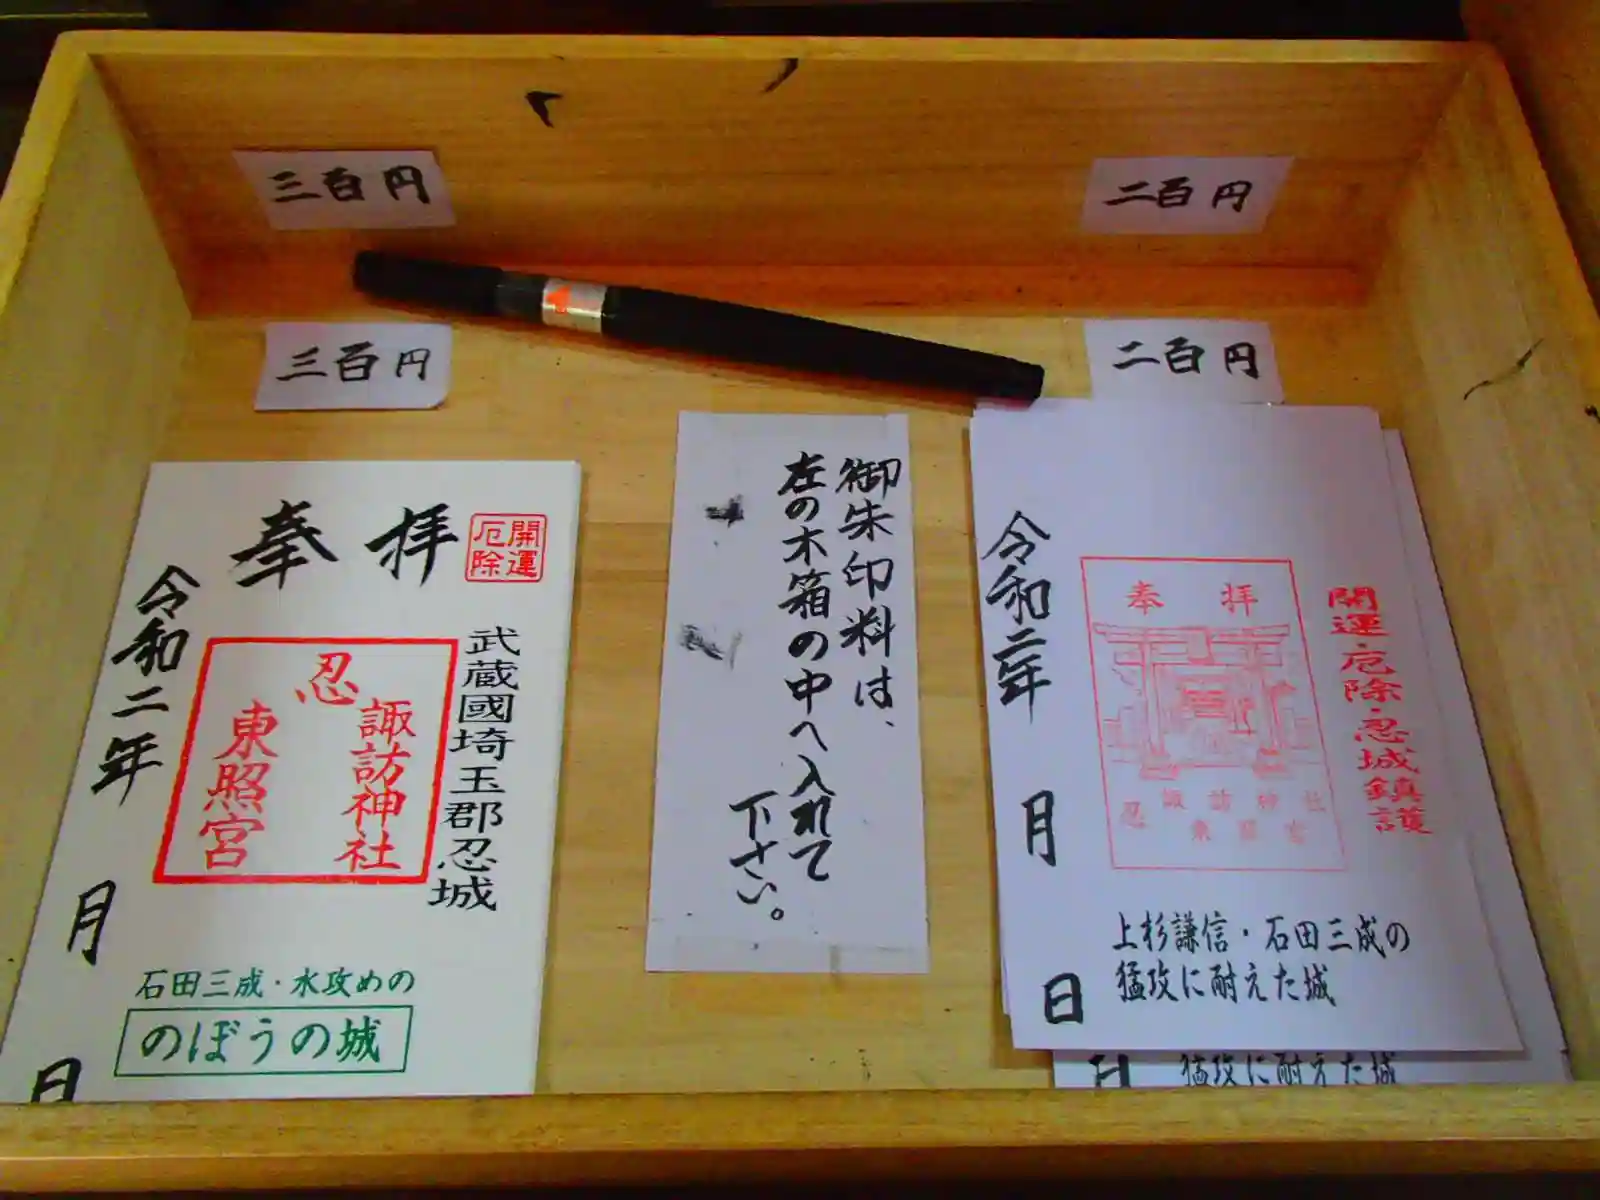 三百円
二百円
三百円
二百円
奉拝
開運
厄除
武蔵國埼玉郡忍城
忍
諏訪神社
東照宮
令和二年
月
日
石田三成・水攻めの
のぼうの城
御朱印料は、
左の木箱の中へ入れて
下さい。
開運・厄除・忍城鎮護
奉拝
忍
諏訪神社
東照宮
令和二年
月
日
上杉謙信・石田三成の
猛攻に耐えた城
日
猛攻に耐えた城